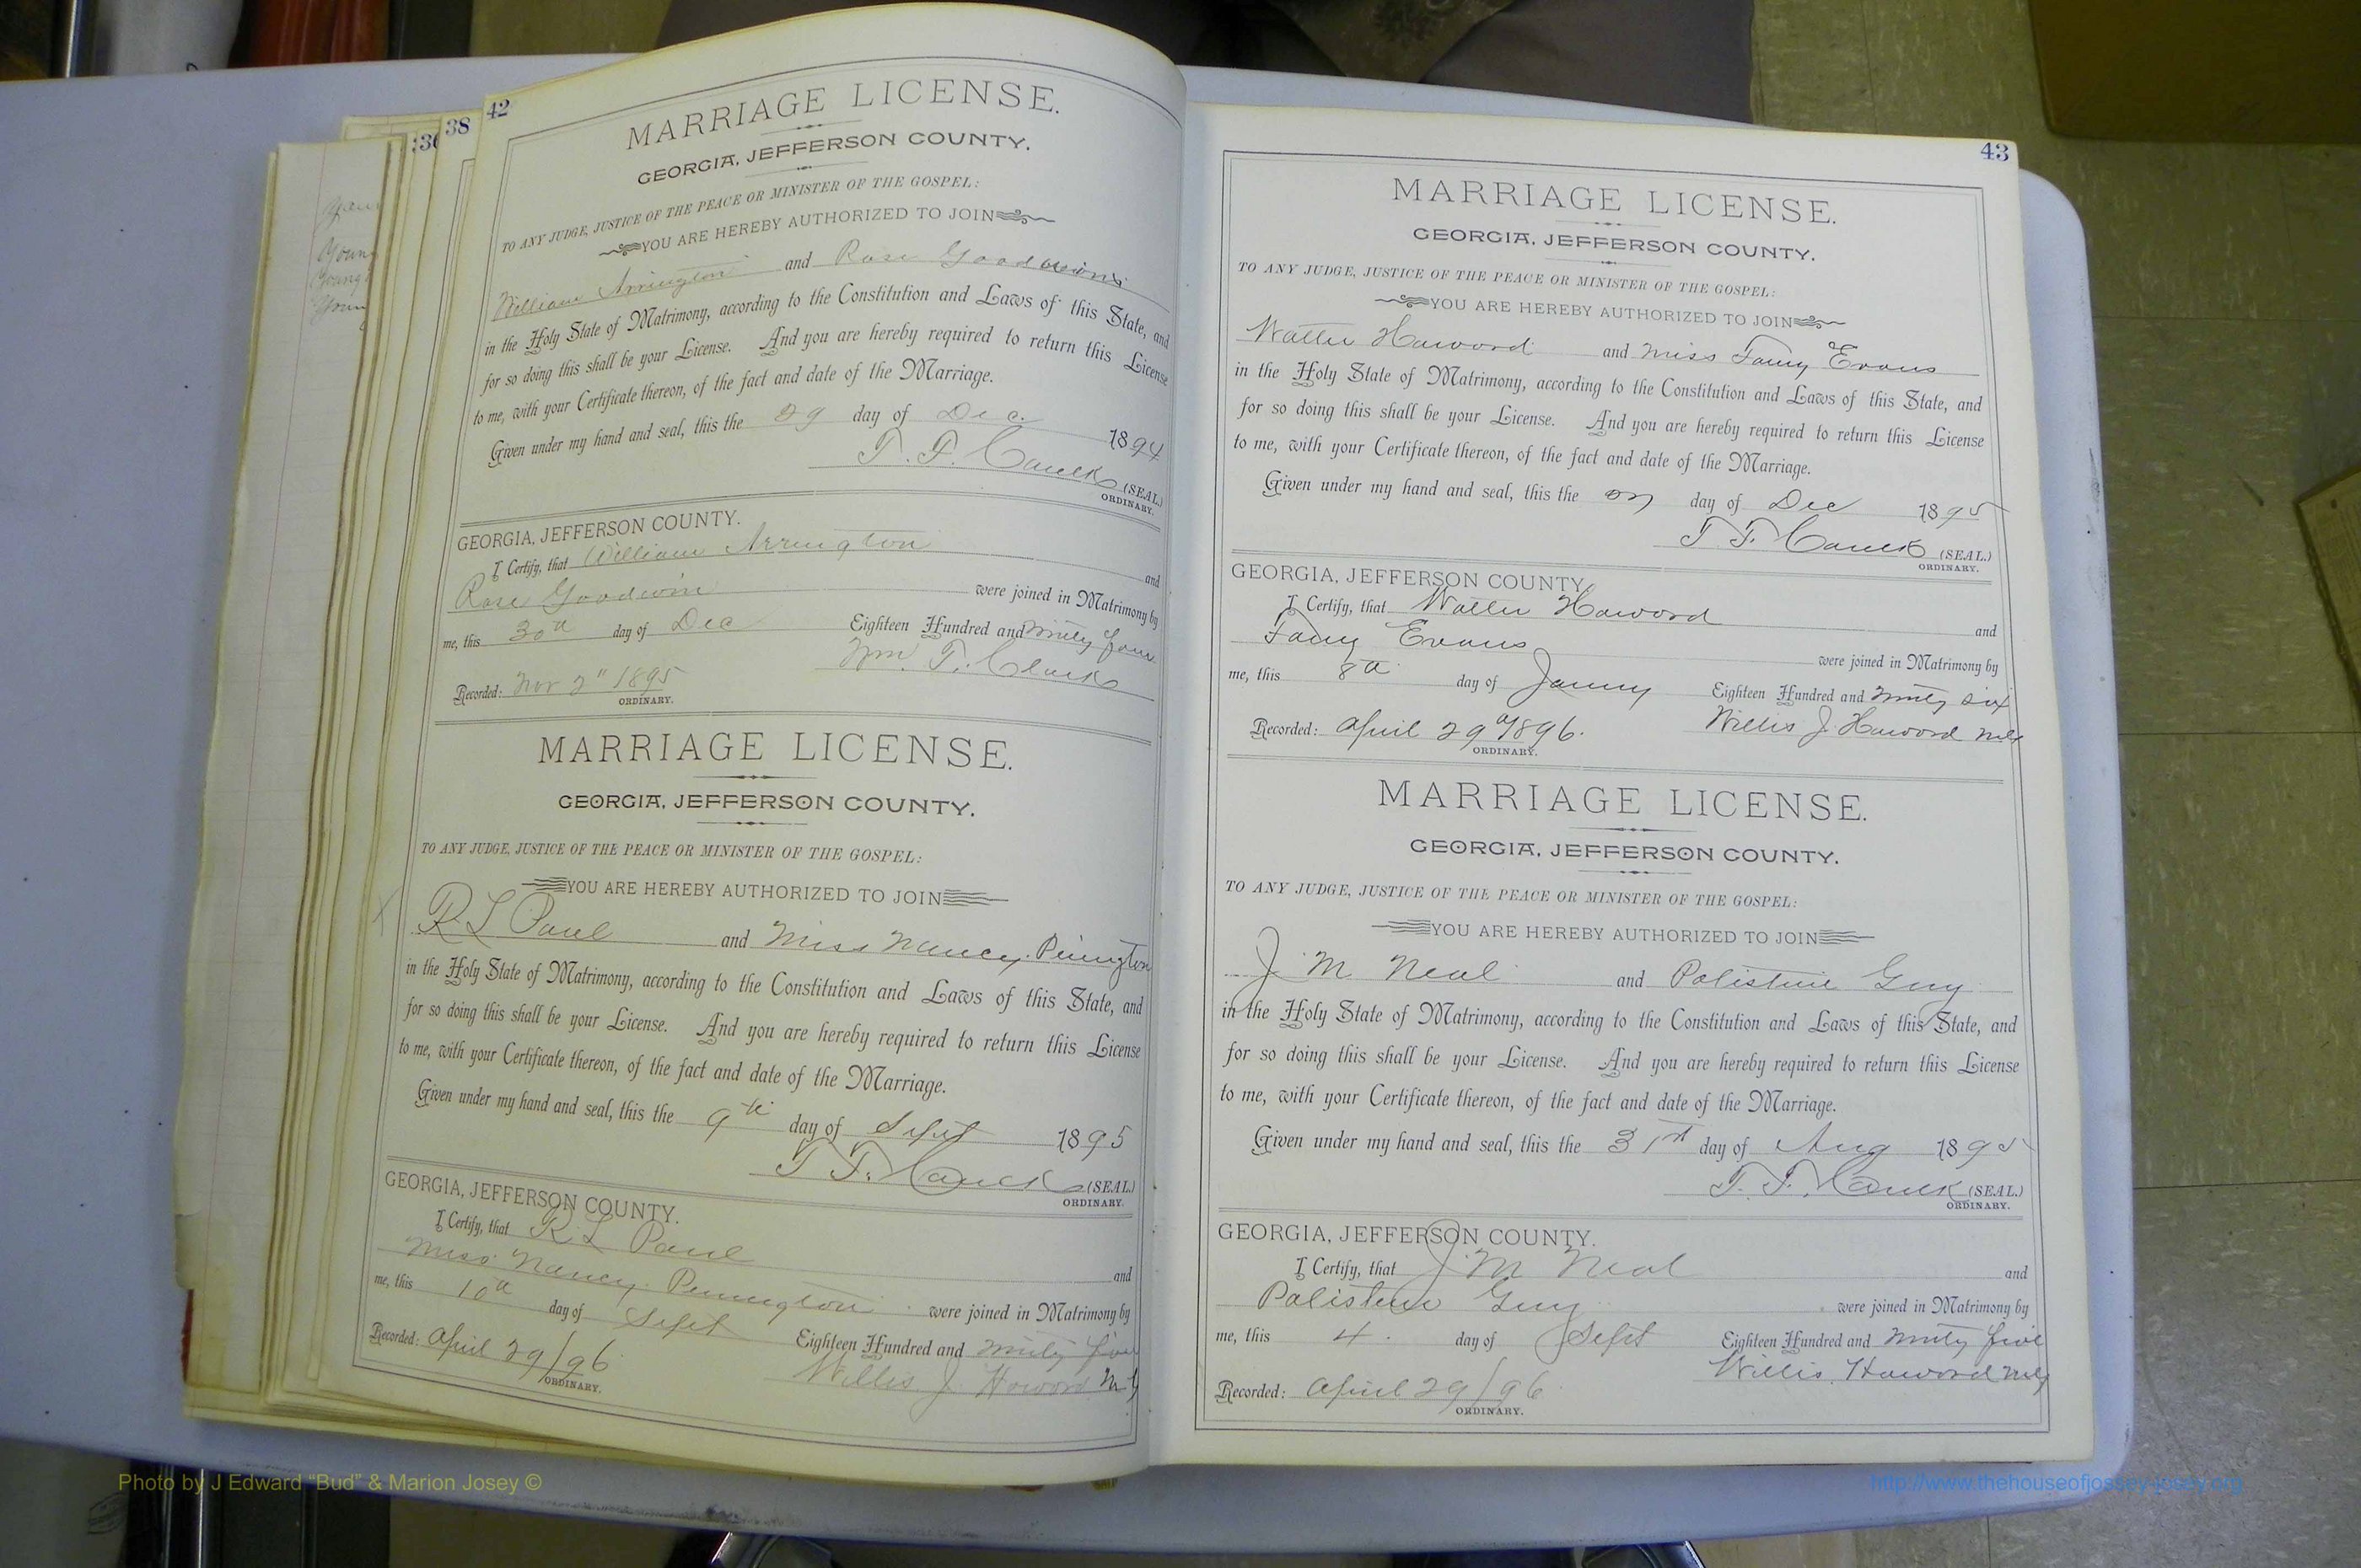 42
MARRIAGE LICENSE.
GEORGIA, JEFFERSON COUNTY.
TO ANY JUDGE, JUSTICE OF THE PEACE OR MINISTER OF THE GOSPEL:
YOU ARE HEREBY AUTHORIZED TO JOIN
William Arrington and Rose Goodwin
in the Holy State of Matrimony, according to the Constitution and Laws of this State, and
for so doing this shall be your License. And you are hereby required to return this License
to me, with your Certificate thereon, of the fact and date of the Marriage.
Given under my hand and seal, this the 29 day of Dec. 1894
T. F. Caulk (SEAL.)
ORDINARY.
GEORGIA, JEFFERSON COUNTY.
I Certify, that William Arrington and
Rose Goodwin were joined in Matrimony by
me, this 30th day of Dec Eighteen Hundred and Ninety four
Wm. T. Clark
Recorded: Nov 2" 1895
ORDINARY.
MARRIAGE LICENSE.
GEORGIA, JEFFERSON COUNTY.
TO ANY JUDGE, JUSTICE OF THE PEACE OR MINISTER OF THE GOSPEL:
YOU ARE HEREBY AUTHORIZED TO JOIN
R L Paul and Miss Nancy
in the Holy State of Matrimony, according to the Constitution and Laws of this State, and
for so doing this shall be your License. And you are hereby required to return this License
to me, with your Certificate thereon, of the fact and date of the Marriage.
Given under my hand and seal, this the 9th day of Sept 1895
T. F. Caulk (SEAL.)
ORDINARY.
GEORGIA, JEFFERSON COUNTY.
I Certify, that R L Paul and
Miss Nancy Pennington were joined in Matrimony by
me, this 10th day of Sept Eighteen Hundred and Ninety five
Willis J. Howard
Recorded: April 29/96
ORDINARY.
38
43
MARRIAGE LICENSE.
GEORGIA, JEFFERSON COUNTY.
TO ANY JUDGE, JUSTICE OF THE PEACE OR MINISTER OF THE GOSPEL:
YOU ARE HEREBY AUTHORIZED TO JOIN
Walter Howard and Miss Fanny Evans
in the Holy State of Matrimony, according to the Constitution and Laws of this State, and
for so doing this shall be your License. And you are hereby required to return this License
to me, with your Certificate thereon, of the fact and date of the Marriage.
Given under my hand and seal, this the day of Dec 1895
T F. Caulk (SEAL.)
ORDINARY.
GEORGIA, JEFFERSON COUNTY.
I Certify, that Walter Howard and
Fanny Evans were joined in Matrimony by
me, this 8th day of Eighteen Hundred and Ninety six
Willis J. Howard
Recorded: April 29th 1896.
ORDINARY.
MARRIAGE LICENSE.
GEORGIA, JEFFERSON COUNTY.
TO ANY JUDGE, JUSTICE OF THE PEACE OR MINISTER OF THE GOSPEL:
YOU ARE HEREBY AUTHORIZED TO JOIN
J M Neal and Palistine Guy
in the Holy State of Matrimony, according to the Constitution and Laws of this State, and
for so doing this shall be your License. And you are hereby required to return this License
to me, with your Certificate thereon, of the fact and date of the Marriage.
Given under my hand and seal, this the 31st day of Aug 1895
T. F. Caulk (SEAL.)
ORDINARY.
GEORGIA, JEFFERSON COUNTY.
I Certify, that J M Neal and
Palistine Guy were joined in Matrimony by
me, this 4 day of Sept Eighteen Hundred and Ninety five
Willis Howard
Recorded: April 29/96
ORDINARY.
Photo by J Edward “Bud” & Marion Josey ©
http://www.thehouseofjossey-josey.org